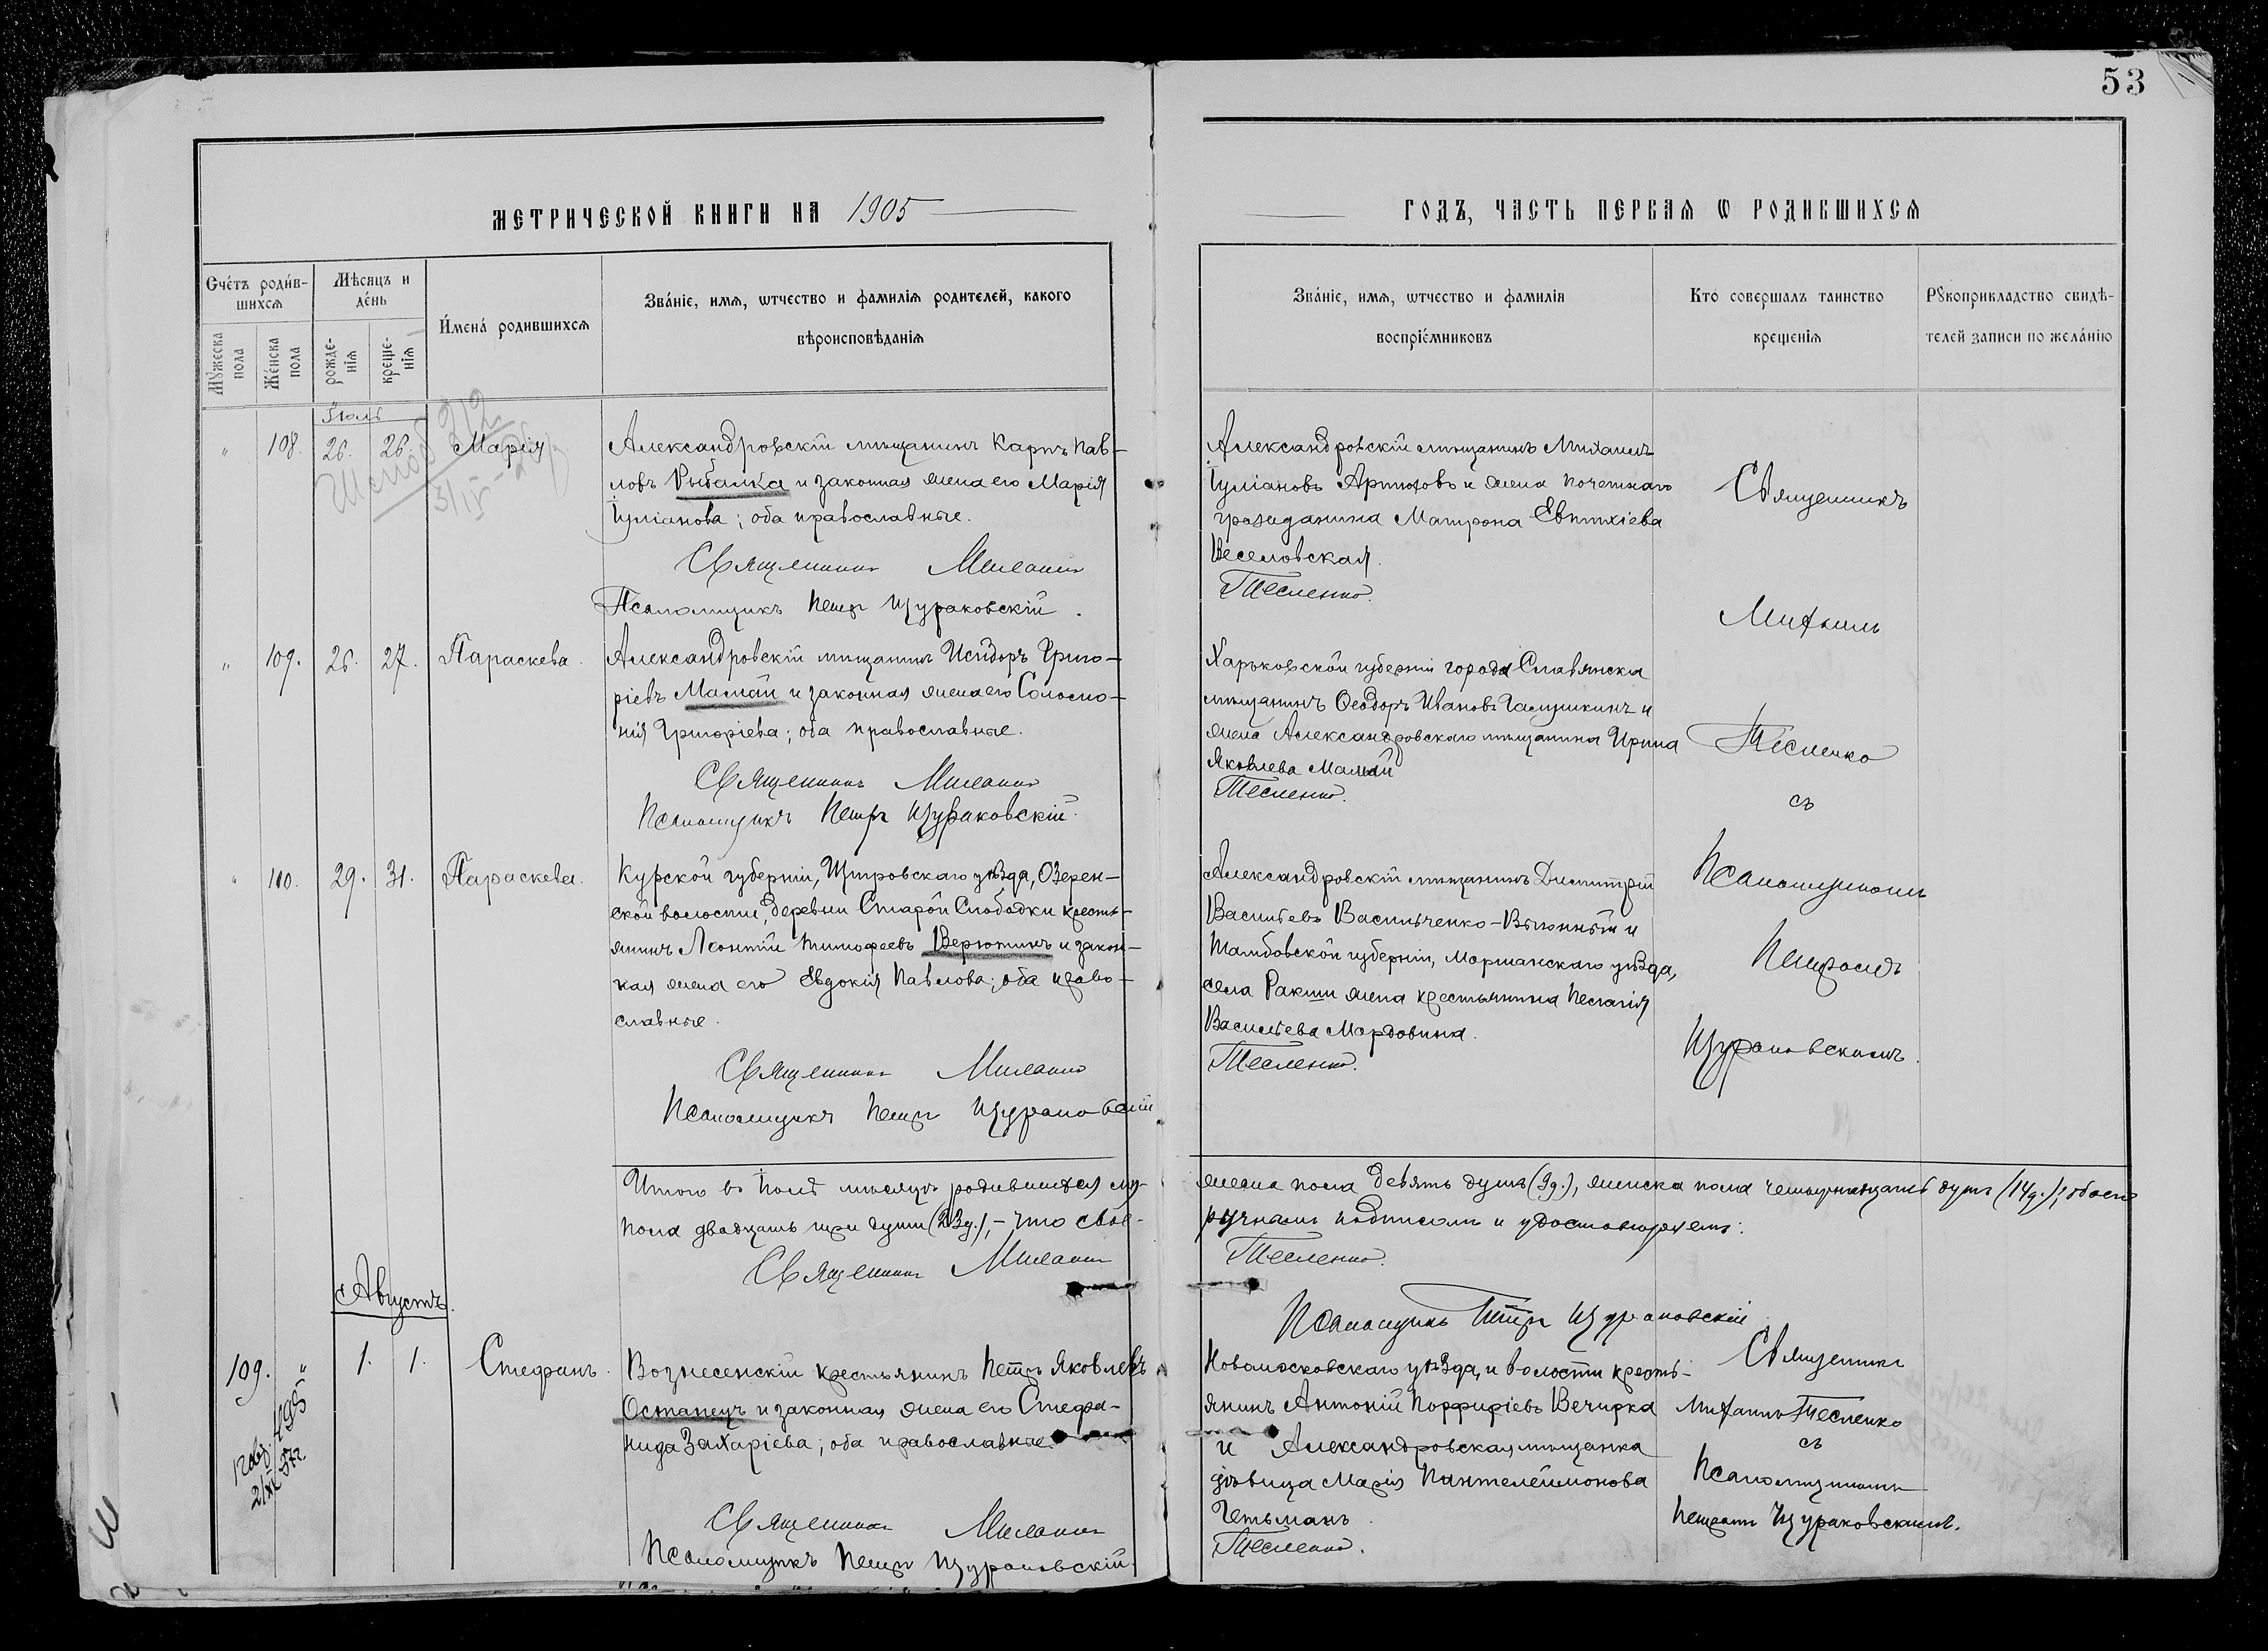 53
МЕТРИЧЕСКОЙ КНИГИ НА 1905
ГОДЪ, ЧАСТЬ ПЕРВАЯ Ѡ РОДИВШИХСѦ
Счéтъ роди́в-
шихсѧ
Мꙋ́жеска
пола
Же́нска
пола
Мѣ́сѧцъ и
де́нь
рожде-
нїѧ
креще-
нїѧ
И́мена́ родившихсѧ
Зва́нїе, имѧ, ѡтчество и фамилїѧ родителей, какого
вѣроисповѣданїѧ
Зва́нїе, имѧ, ѡтчество и фамилїѧ
воспрїе́мниковъ
Кто́ совершалъ таинство
крещенїѧ
Рꙋкоприкладство свидѣ-
телей записи по жела́нїю
Іюль
" 108. 26. 26. Марія
Александровскій мѣщанинъ Карпъ Пав-
ловъ Рыбалка и законная жена его Марія
Іуліанова; оба православные.
Священникъ Михаилъ
Псаломщикъ Петръ Щураковскій.
Александровскій мѣщанинъ Михаилъ
Іуліановъ Артюховъ и жена почетнаго
гражданина Матрона Евтихіева
Веселовская.
Тесленко.
Священникъ
Михаилъ
Тесленко
съ
Псаломщикомъ
Петромъ
Щураковскимъ.
" 109. 26. 27. Параскева.
Александровскій мѣщанинъ Исидоръ Григо-
ріевъ Мамай и законная жена его Соломо-
нія Григоріева; оба православные.
Священникъ Михаилъ
Псаломщикъ Петръ Щураковскій.
Харьковской губерніи города Славянска
мѣщанинъ Ѳеодоръ Ивановъ Галушкинъ и
жена Александровскаго мѣщанина Ирина
Яковлева Мамай
Тесленко.
" 110. 29. 31. Параскева.
Курской губерніи, Щигровскаго уѣзда, Озерен-
ской волости, деревни Старой Слободки кресть-
янинъ Леонтій Тимофеевъ Верютинъ и закон-
ная жена его Евдокія Павлова; оба право-
славные.
Священникъ Михаилъ
Псаломщикъ Петръ Щураковскій
Александровскій мѣщанинъ Димитрій
Васильевъ Васильченко-Вьюнный и
Тамбовской губерніи, Моршанскаго уѣзда,
села Ракши жена крестьянина Пелагія
Васильева Мордовина.
Тесленко.
Итого въ Іюлѣ мѣсяцѣ родившихся му-
жеска пола девять душъ (9д.), женска пола четырнадцать душъ (14д.), обоего
пола двадцать три души (23д.), – что свое-
ручнымъ подписомъ и удостовѣряемъ:
Священникъ Михаилъ
Тесленко.
Псаломщикъ Петръ Щураковскій
Августъ.
109. " 1. 1. Стефанъ.
Вознесенскій крестьянинъ Петръ Яковлевъ
Остапецъ и законная жена его Стефа-
нида Захаріева; оба православные.
Священникъ Михаилъ
Псаломщикъ Петръ Щураковскій.
Новомосковскаго уѣзда, и волости кресть-
янинъ Антоній Порфиріевъ Вечирка
и Александровская мѣщанка
дѣвица Марія Пантелеймонова
Гетьманъ.
Тесленко.
Священникъ
Михаилъ Тесленко
съ
Псаломщикомъ
Петромъ Щураковскимъ.